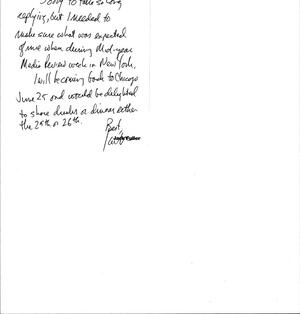 Sorry to take so long
replying, but I needed to
make sure what was expected
of me when during Mid-year
Media Review week in New York.
I will be coming back to Chicago
June 25 and would be delighted
to share drinks or dinner either
the 25th or 26th.
Best,